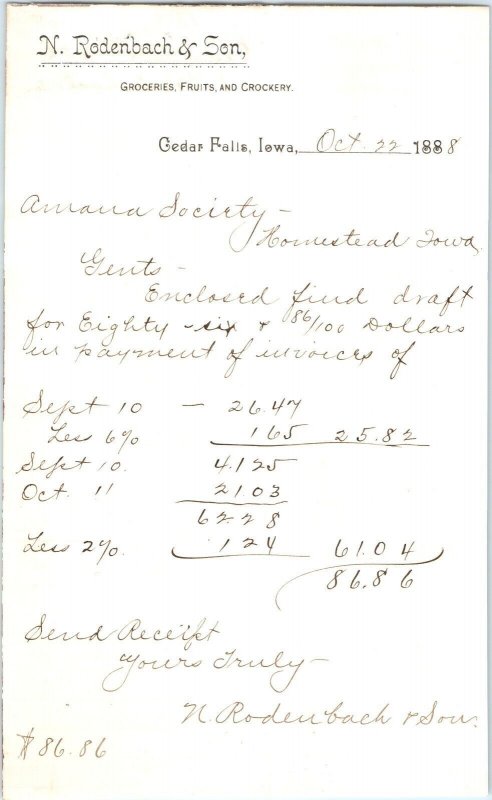 N. Rodenbach & Son,
Groceries, Fruits, and Crockery.
Cedar Falls, Iowa, Oct. 22 1888
Amana Society -
Homestead Iowa,
Gents -
Enclosed find draft
for Eighty-six & 86/100 Dollars
in payment of invoices of
Sept 10 - 26.47
Less 6% 165 25.82
Sept 10. 41.25
Oct. 11 2103
6228
Less 2%. 124 61.04
86.86
Send Receipt
Yours Truly -
N. Rodenbach & Son.
$86.86